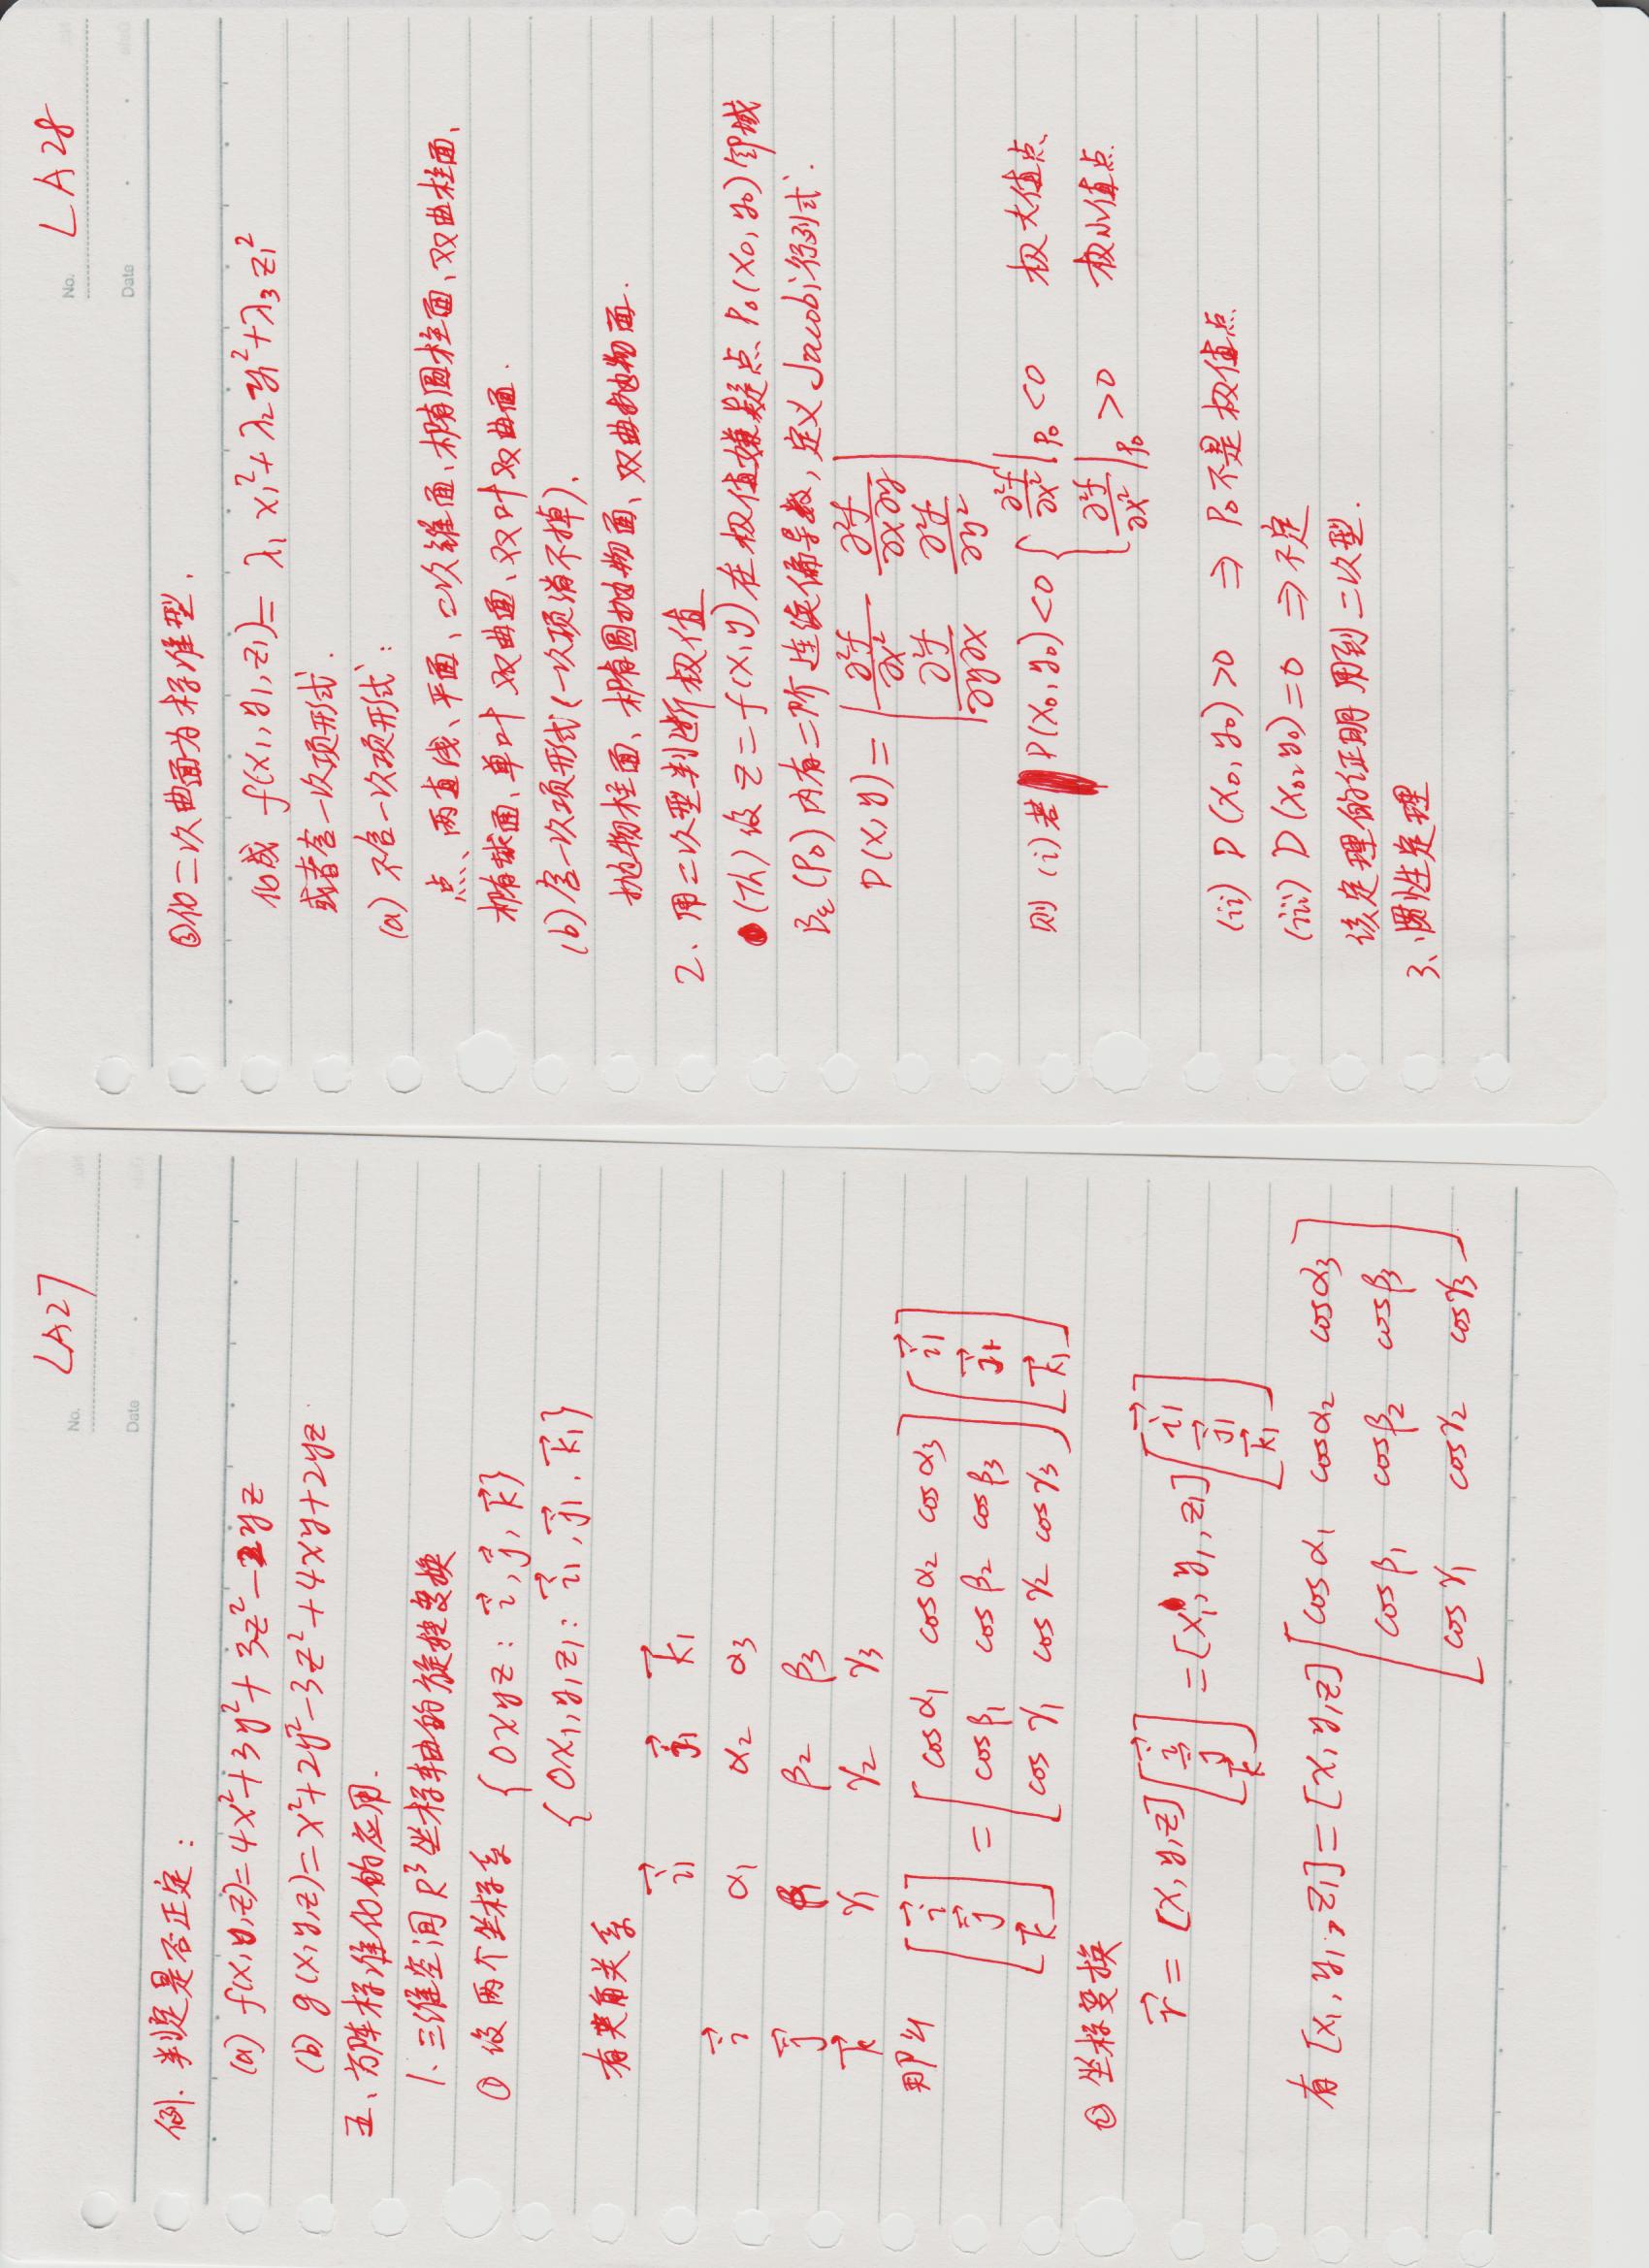 No. LA27
Date
例. 判定是否正定:
(a) f(x,y,z)=4x²+3y²+3z²-2yz
(b) g(x,y,z)=x²+2y²-3z²+4xy+2yz
五、方阵标准化的应用.
1. 三维空间R³坐标轴的旋转变换
① 设两个坐标系 {Oxyz: i⃗, j⃗, k⃗}
{Ox₁,y₁z₁: i⃗₁, j⃗₁, k⃗₁}
有夹角关系
i⃗₁ j⃗₁ k⃗₁
i⃗ α₁ α₂ α₃
j⃗ β₁ β₂ β₃
k⃗ γ₁ γ₂ γ₃
那么 [i⃗ j⃗ k⃗] = [cosα₁ cosα₂ cosα₃
cosβ₁ cosβ₂ cosβ₃
cosγ₁ cosγ₂ cosγ₃] [i⃗₁ j⃗₁ k⃗₁]
② 坐标变换
r⃗ = [x,y,z] [i⃗ j⃗ k⃗] = [x₁,y₁,z₁] [i⃗₁ j⃗₁ k⃗₁]
有 [x₁,y₁,z₁]=[x,y,z] [cosα₁ cosα₂ cosα₃
cosβ₁ cosβ₂ cosβ₃
cosγ₁ cosγ₂ cosγ₃]
No. LA28
Date
③化二次曲面为标准型.
化成 f(x₁,y₁,z₁)= λ₁x₁²+λ₂y₁²+λ₃z₁²
或者含一次项形式.
(a) 不含一次项形式:
点、两直线、平面、二次锥面、椭圆柱面、双曲柱面、
椭球面、单叶双曲面、双叶双曲面.
(b)含一次项形式(一次项消不掉).
抛物柱面、椭圆抛物面、双曲抛物面.
2、用二次型判断极值
(Th) 设 z=f(x,y)在极值嫌疑点 P₀(x₀,y₀)邻域
Bε(P₀)内有二阶连续偏导数,定义Jacobi行列式.
D(x,y)= |∂²f/∂x² ∂²f/∂x∂y
∂²f/∂y∂x ∂²f/∂y²|
则 (i)若 D(x₀,y₀)<0 { ∂²f/∂x²|P₀ <0 极大值点
∂²f/∂x²|P₀ >0 极小值点
(ii) D(x₀,y₀)>0 ⇒ P₀不是极值点
(iii) D(x₀,y₀)=0 ⇒不定
该定理的证明用到二次型.
3、惯性定理